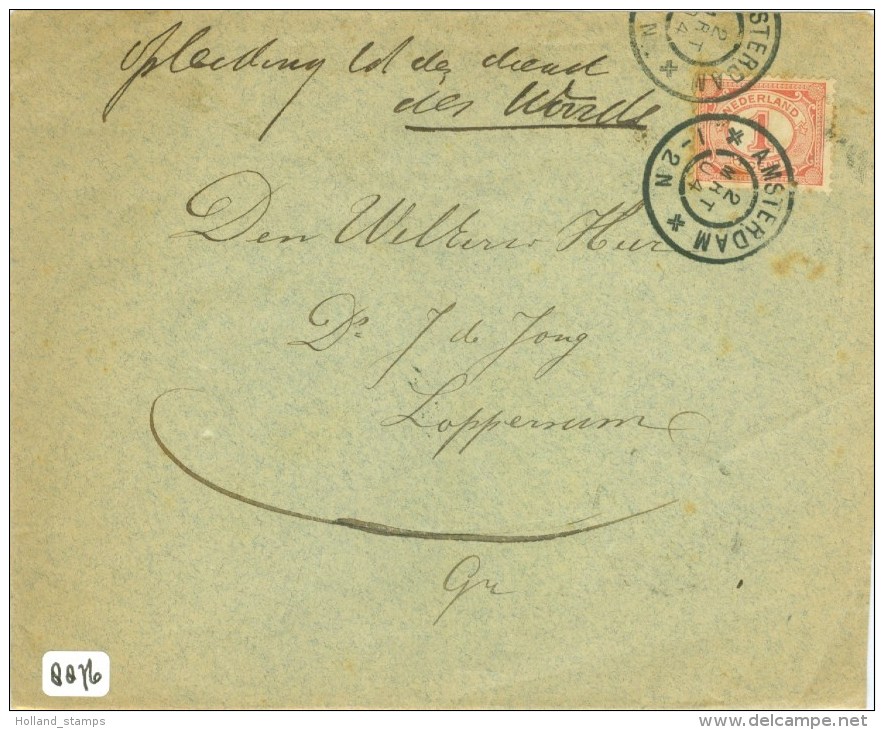 Opleiding tot de dienst
des Woords
NEDERLAND
1
AMSTERDAM
2 MRT 04
1-2N
AMSTERDAM
2 MRT 04
N
Den WelEerw Heer
Ds. J de Jong
Loppersum
Gr
8876
Holland_stamps
www.delcampe.net